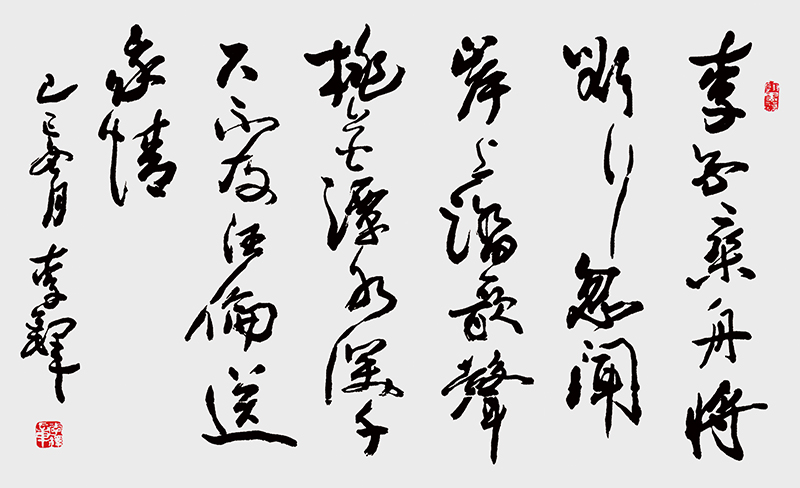 李白乘舟将
欲行忽闻
岸上踏歌聲
桃花潭水深千
尺不及汪倫送
我情
己巳 月 李鐸